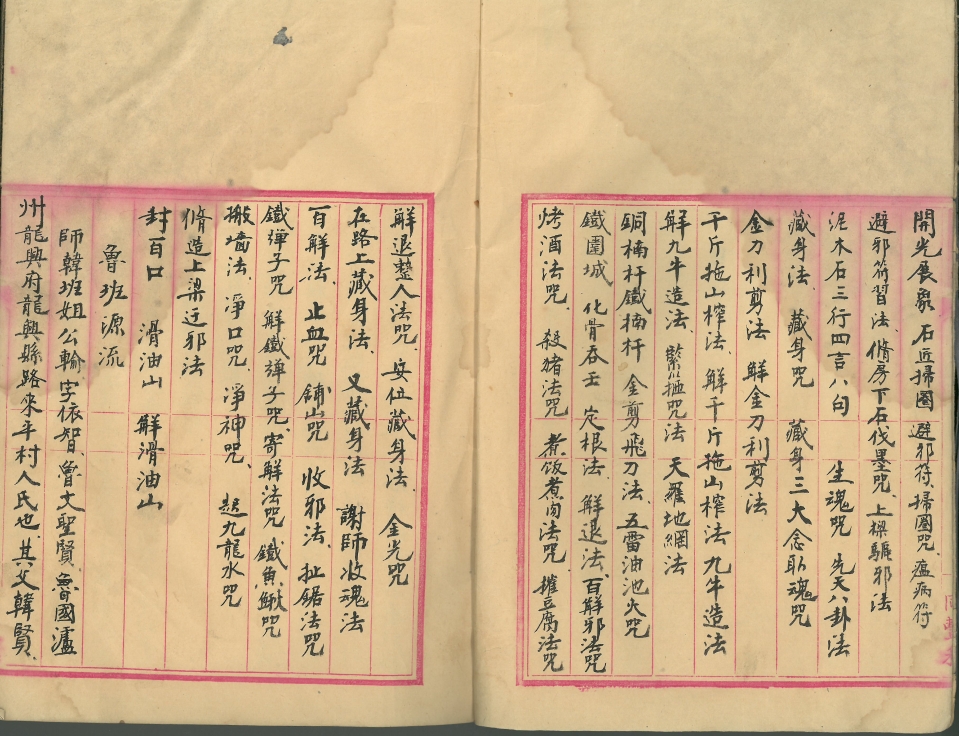 開光展象 石匠掃圈 避邪符、掃圈咒、瘟病符
避邪符習法、脩房下石伐墨咒、上樑驅邪法
泥木石三行四言八句 生魂咒 先天八卦法
藏身法、藏身咒 藏身三大念臥魂咒
金刀利剪法 解金刀利剪法
千斤拖山榨法、解千斤拖山榨法 九牛造法
解九牛造法、緊箍咒法 天羅地網法
銅楠杆鐵楠杆 金剪飛刀法、五雷油池火咒
鐵圍城 化骨吞王 定根法、解退法、百解邪法咒
烤酒法咒、殺猪法咒 煮饭煮肉法咒、推豆腐法咒
解退整人法咒、安位藏身法、金光咒
在路上藏身法、又藏身法 謝師收魂法
百解法、止血咒 舖山咒 收邪法、扯鋸法咒
鐵禅子咒 解鐵禅子咒、寄解法咒 鐵魚鰍咒
搬墙法、淨口咒、淨神咒、起九龍水咒
脩造上梁迋邪法
封百口 滑油山 解滑油山
魯班源流
師韓班姐公輸字依智、魯大聖賢、魯國瀘
州龍興府龍興縣路来平村人氏也、其父韓賢、